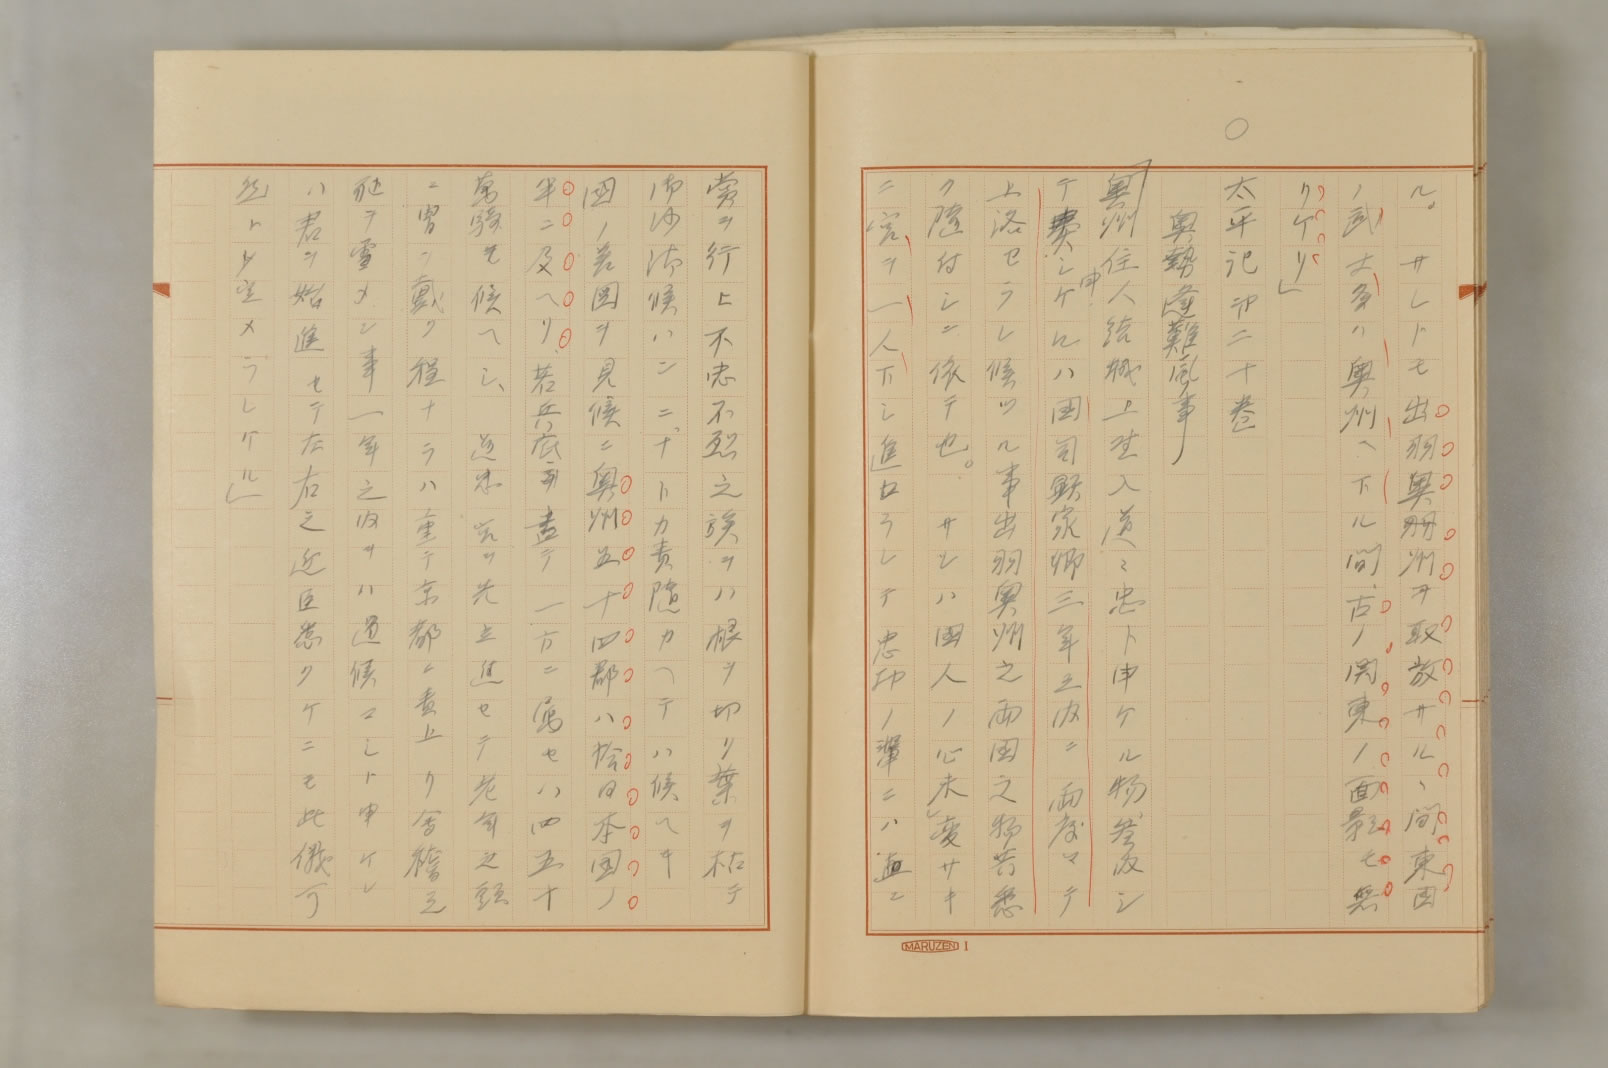 ル。サレドモ出羽奥州ヲ取放サル、間東国
ノ武士多ハ奥州ヘ下ル間、古ノ関東ノ面影モ無
リケリ」
○
太平記 第二十巻
奥勢逢難風事
「奥州住人結城上野入道々忠ト申ケル物参内シ
テ奏シ申ケルハ国司顕家卿三年之内ニ両度マテ
上洛セラレ候ツル事出羽奥州之両国之物共悉
ク随付シニ依テ也。サレハ国人ノ心未変サキ
ニ宮ヲ一人下シ進ロラレテ忠功ノ輩ニハ直ニ
賞ヲ行上不忠不烈之族ヲハ根ヲ切リ葉ヲ枯テ
御沙汰候ハンニナトカ責随カヘテハ候ヘキ
国ノ差図ヲ見候ニ奥州五十四郡ハ恰日本国ノ
半ニ及ヘリ若兵底ヲ盡テ一方ニ属セハ四五十
萬騎モ候ヘシ、道忠宮ヲ先立進セテ老年之頭
ニ冑ヲ戴ク程ナラハ重テ京都ニ責上リ會稽之
恥ヲ雪メン事一年之内ヲハ過候マシト申ケレ
ハ君ヲ始進セテ左右之近臣悉クケニモ此儀可
然トソ定メラレケル」
MARUZEN 1